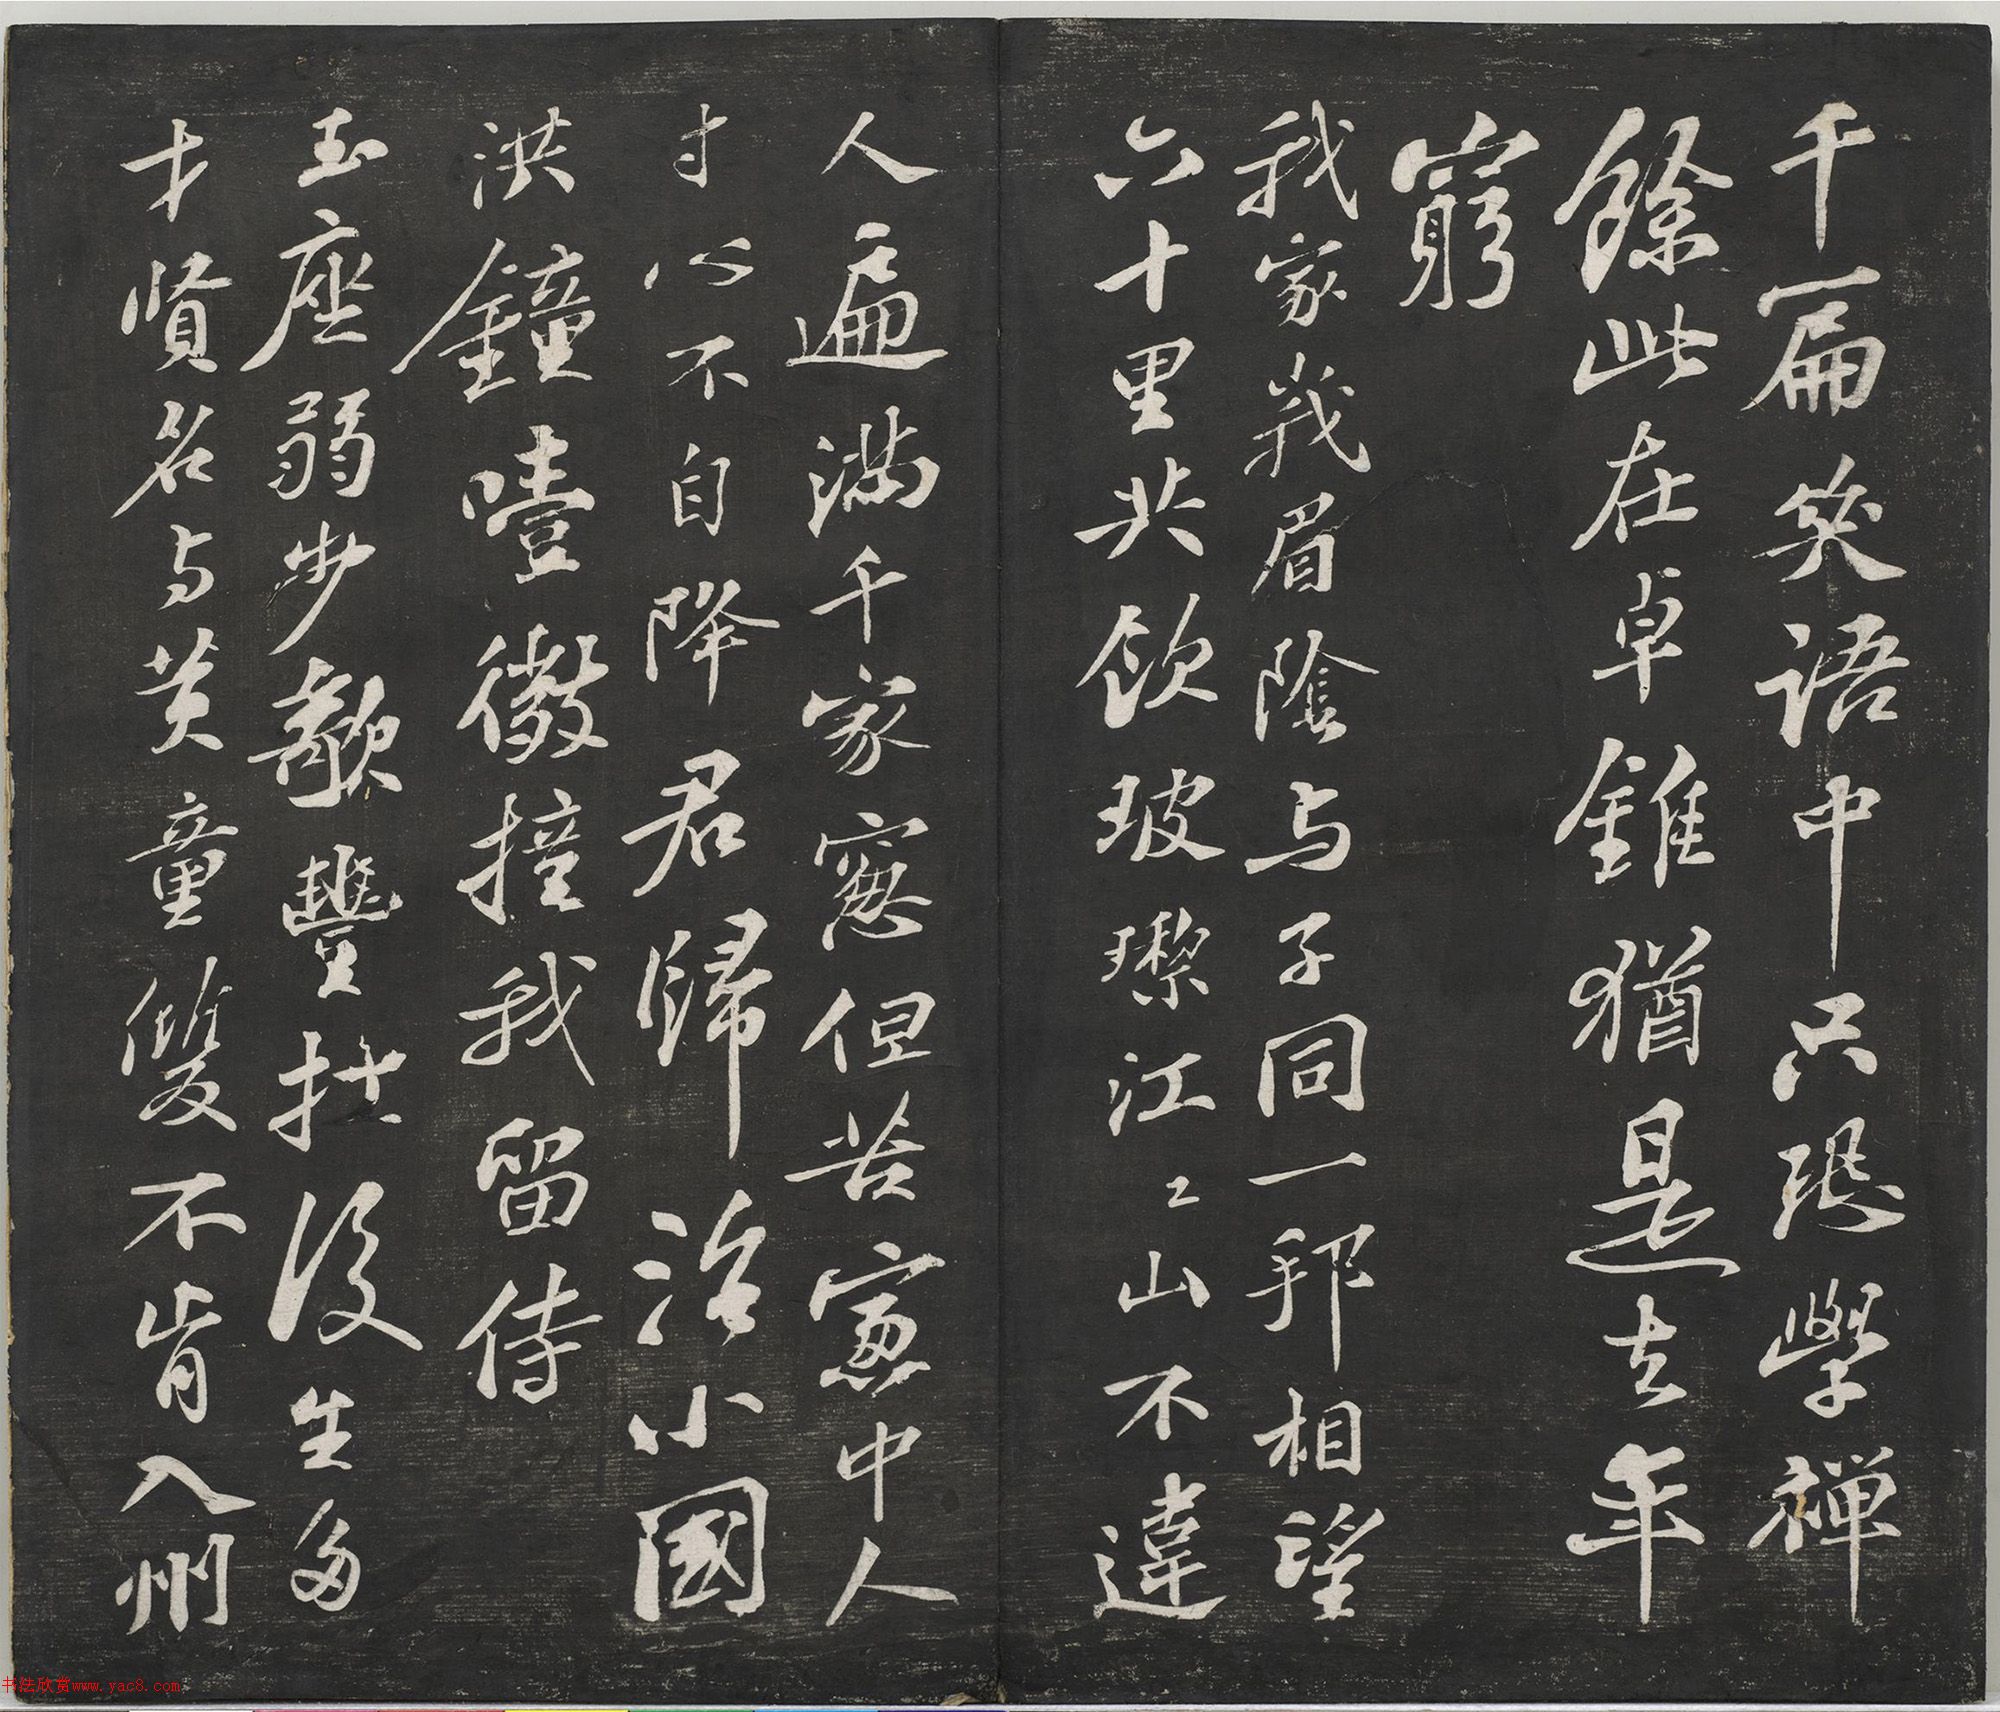 千篇矣語中只恐學禪
餘此在卓錐猶是去年
窮
我家峩眉陰与子同一邦相望
六十里共飲玻瓈江〻山不違
人遍滿千家窻但苦窻中人
寸心不自降君歸治小國
洪鐘噎微撞我留侍
玉座弱步欹豐扛後生多
才賢名与黃童雙不肯入州
书法欣赏www.yac8.com